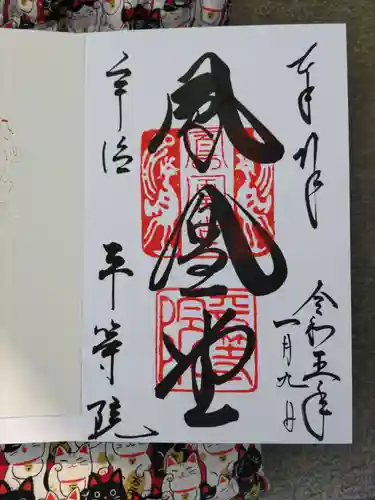 奉拝
令和五年
一月九日
鳳凰堂
宇治
平等院